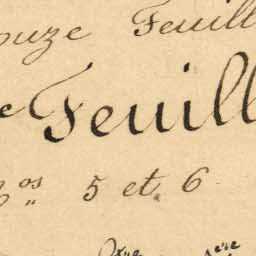 ouze Feuill
e Feuill
os 5 et 6